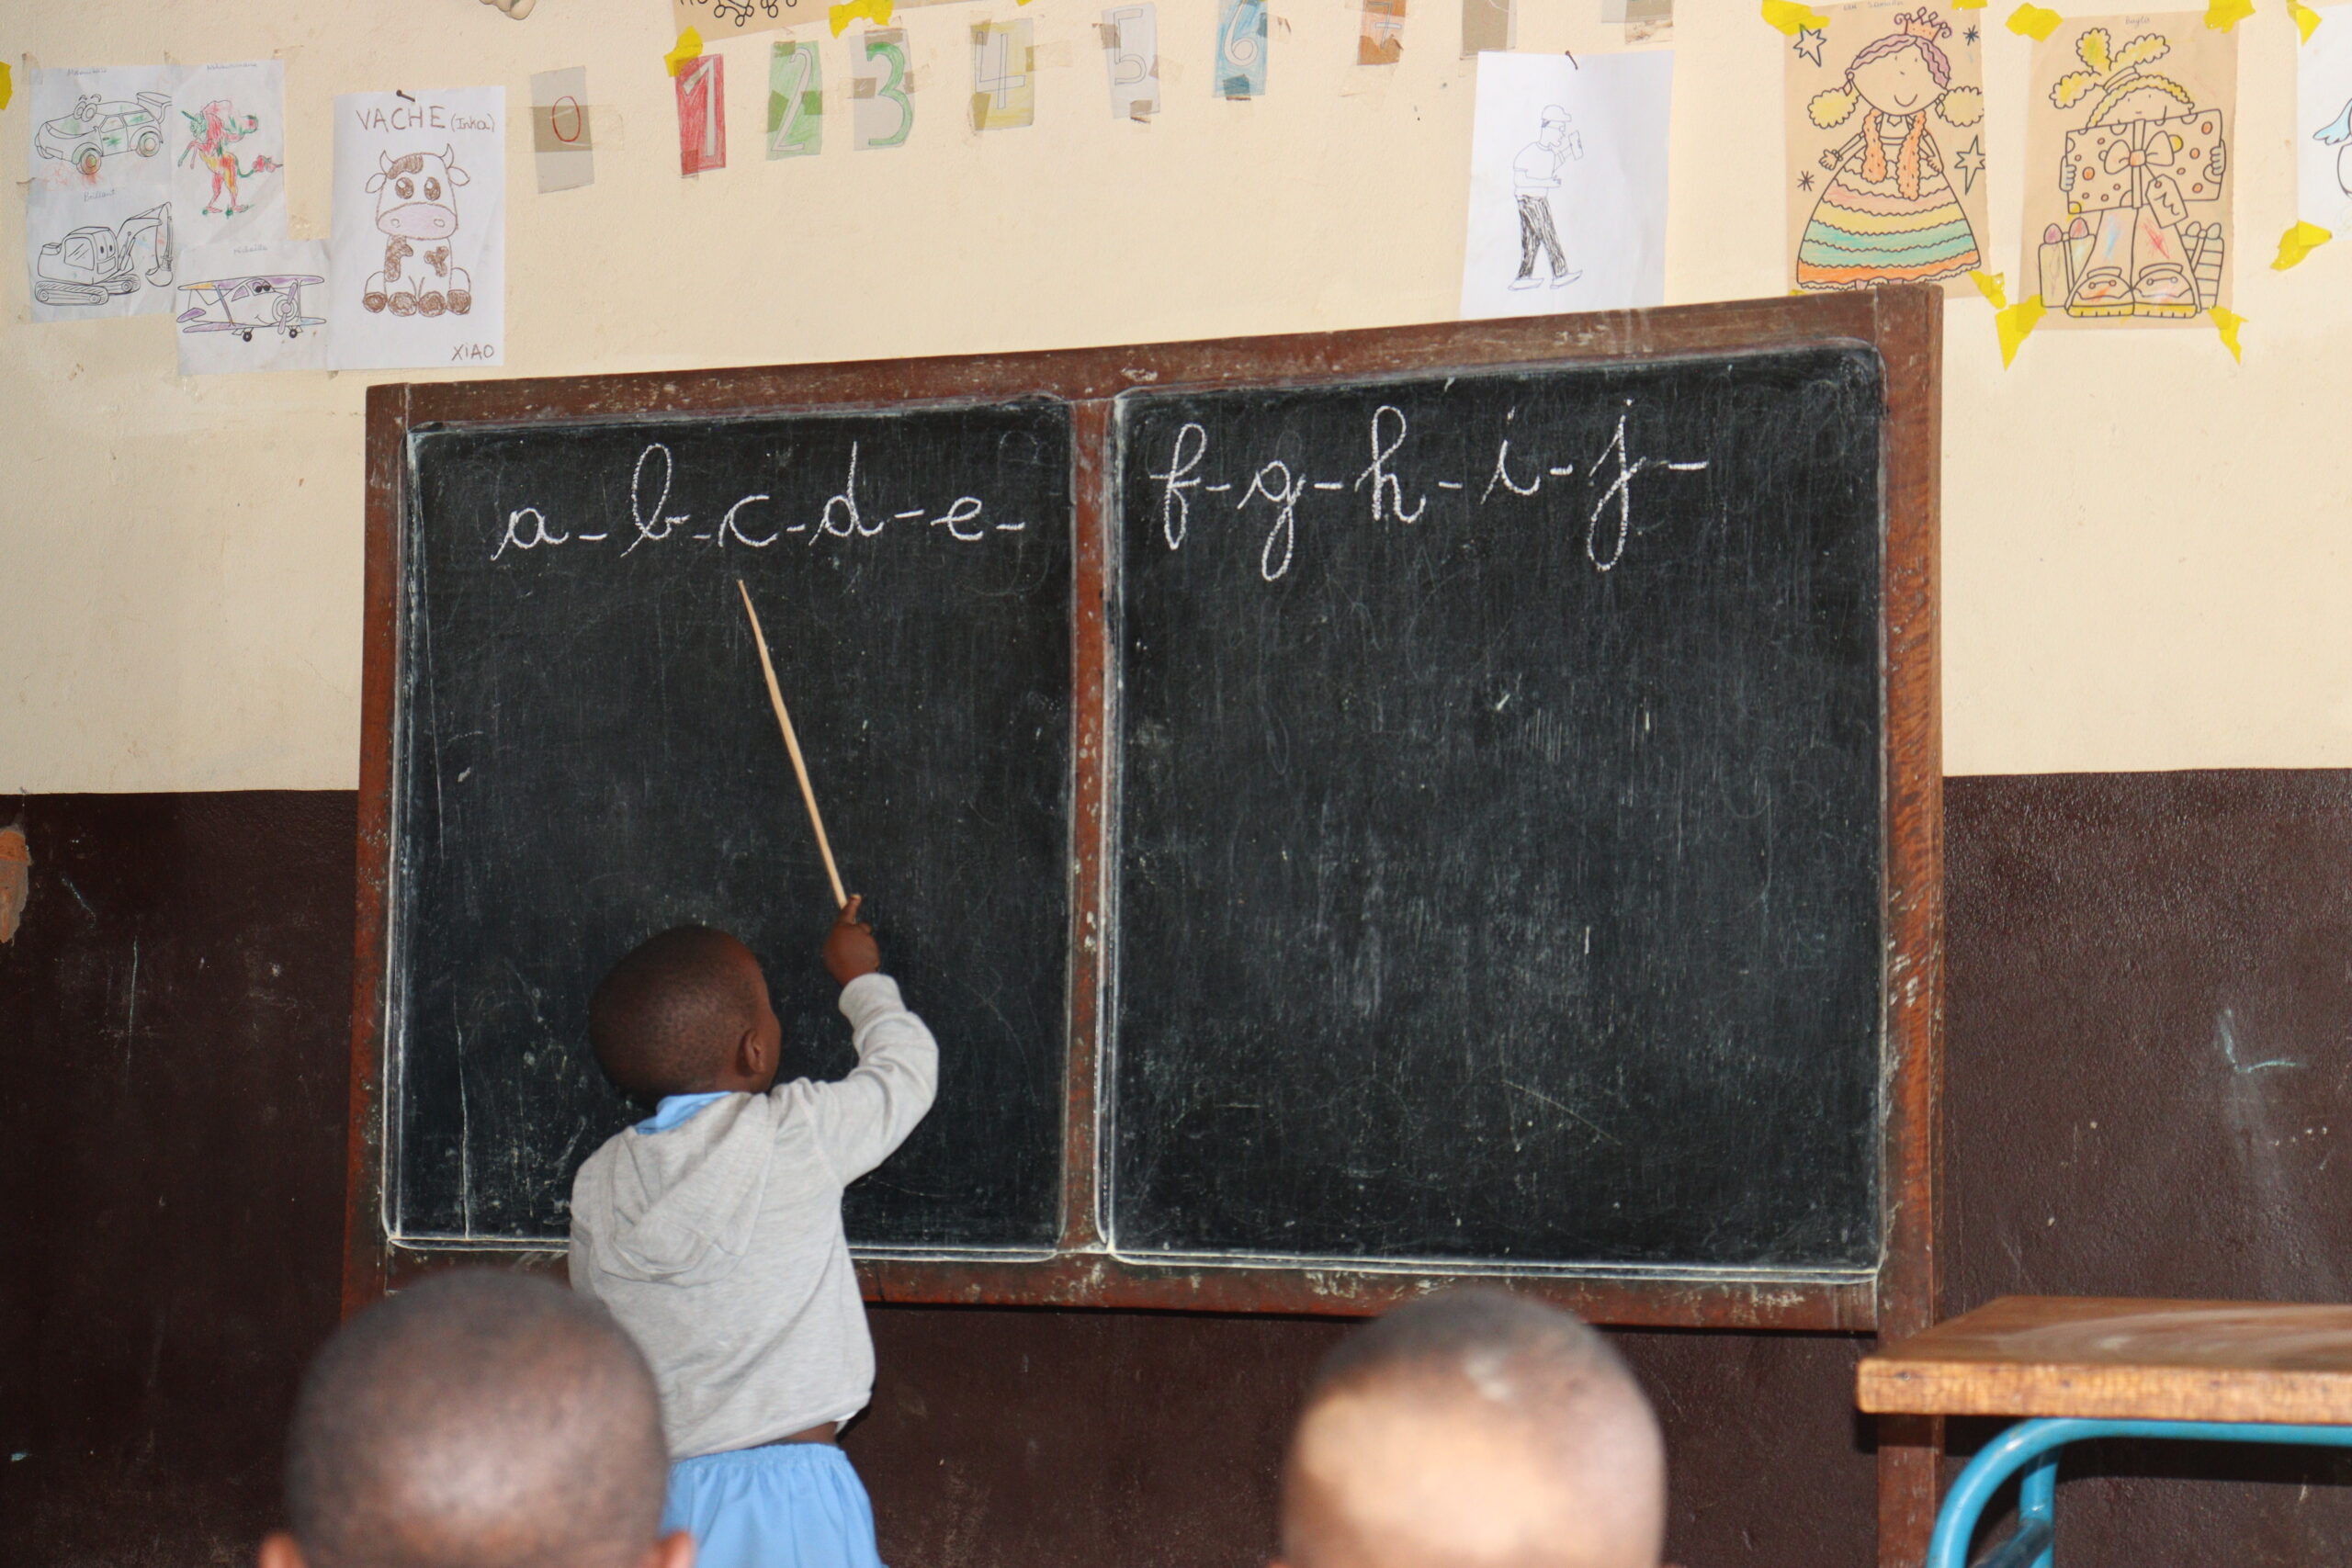 VACHE (Inka)
XIAO
0 1 2 3 4 5 6
a - b - c - d - e -
f - g - h - i - j -